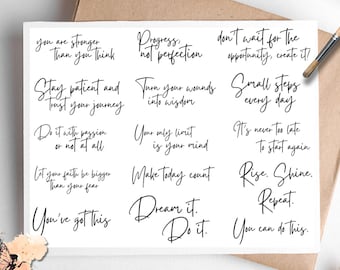 you are stronger
than you think
Progress,
not perfection
don't wait for the
opportunity, create it!
Stay patient and
trust your journey
Turn your wounds
into wisdom
Small steps
every day
Do it with passion
or not at all
Your only limit
is your mind
It's never too late
to start again
Let your faith be bigger
than your fear
Make today count
Rise. Shine.
Repeat.
You've got this
Dream it.
Do it.
You can do this.